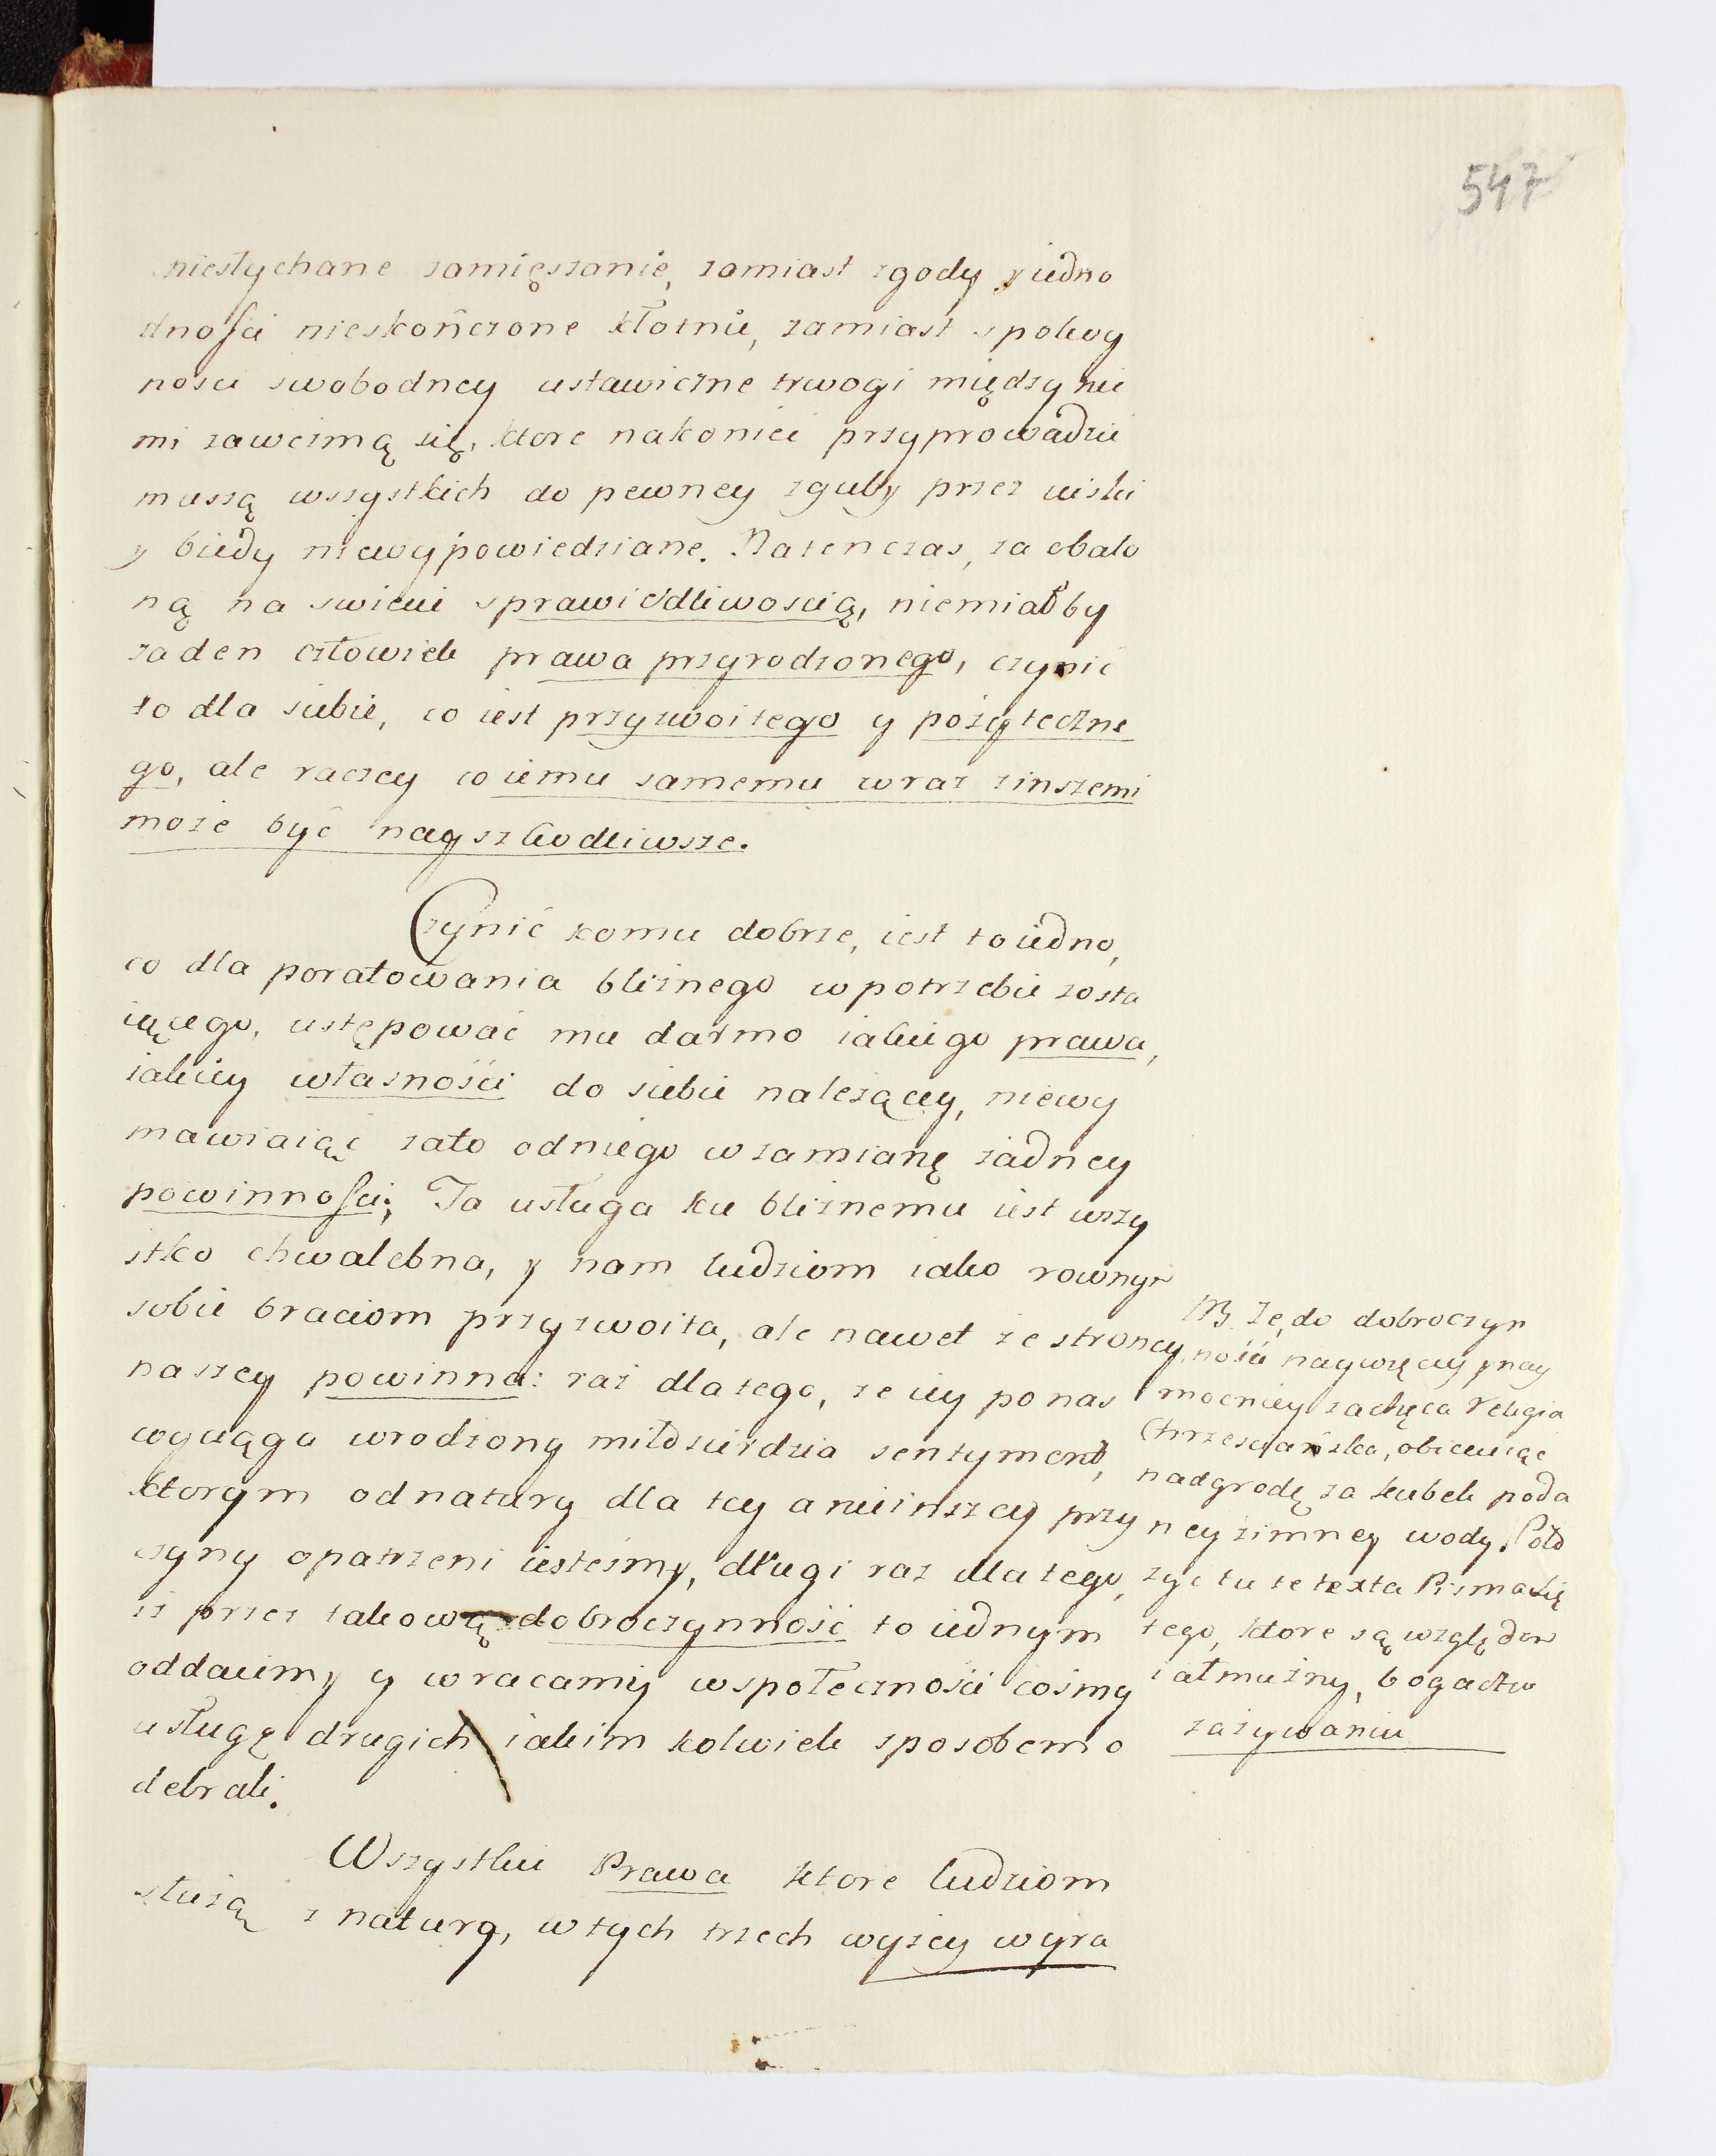 547
niesłychane zamięszanie, zamiast zgody y iedno
dności nieskończone kłotnie, zamiast spokoy
ności swobodney ustawiczne trwogi między nie
mi zawezmą się, ktore nakoniec przyprowadzić
muszą wszystkich do pewney zguby przez uciski
y biedy niewypowiedziane. Natenczas, za obalo
ną na swiecie sprawiedliwością, niemiałby
zaden człowiek prawa przyrodzonego, czynić
to dla siebie, co iest przyzwoitego y pożyteczne
go, ale raczey co iemu samemu wraz z inszemi
może być nayszkodliwsze.
Czynić komu dobrze, iest to iedno,
co dla poratowania bliźnego w potrzebie zosta
iącego, ustępować mu darmo iakiego prawa,
iakiey własności do siebie należącey, niewy
mawiaiąc zato od niego w zamianę żadney
powinności; Ta usługa ku bliźnemu iest wszy
stko chwalebna, y nam ludziom iako rownym
sobie braciom przyzwoita, ale nawet ze strony
naszey powinna: raz dlatego, że iey po nas
wyciąga wrodzony miłosierdzia sentyment,
ktorym od natury dla tey a nieinszey przy
czyny opatrzeni iesteśmy, długi raz dla tego,
iż przez takową dobroczynność to iednym
oddaiemy y wracamy w społeczności cośmy
usługę drugich iakim kolwiek sposobem o
debrali.
Wszystkie Prawa ktore ludziom
służą z natury, w tych trzech wyżey wyra
NB. Że do dobroczyn
ności naywięcey y nay
mocniey zachęca Religia
Chrześciańska, obiecuiąc
nadgrodę za kubek poda
ney zimney wody. Poło
zyć tu te texta Pisma Świę
tego, ktore są względem
iałmużny, bogactw
zażywaniu